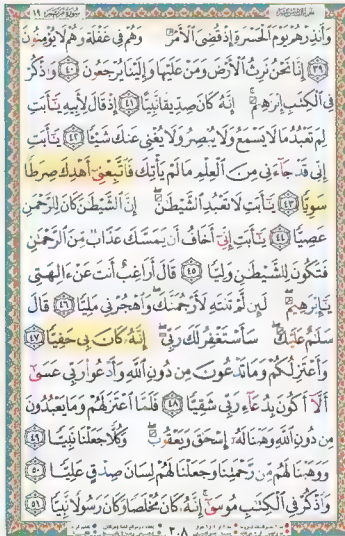 سُورَةُ مَرْيَمَ ١٩
وَأَنذِرْهُمْ يَوْمَ الْحَسْرَةِ إِذْ قُضِيَ الْأَمْرُ وَهُمْ فِي غَفْلَةٍ وَهُمْ لَا يُؤْمِنُونَ
﴿٣٩﴾ إِنَّا نَحْنُ نَرِثُ الْأَرْضَ وَمَنْ عَلَيْهَا وَإِلَيْنَا يُرْجَعُونَ ﴿٤٠﴾ وَاذْكُرْ
فِي الْكِتَٰبِ إِبْرَٰهِيمَ ۚ إِنَّهُ كَانَ صِدِّيقًا نَّبِيًّا ﴿٤١﴾ إِذْ قَالَ لِأَبِيهِ يَٰٓأَبَتِ
لِمَ تَعْبُدُ مَا لَا يَسْمَعُ وَلَا يُبْصِرُ وَلَا يُغْنِي عَنكَ شَيْئًا ﴿٤٢﴾ يَٰٓأَبَتِ
إِنِّي قَدْ جَآءَنِي مِنَ الْعِلْمِ مَا لَمْ يَأْتِكَ فَاتَّبِعْنِيٓ أَهْدِكَ صِرَٰطًا
سَوِيًّا ﴿٤٣﴾ يَٰٓأَبَتِ لَا تَعْبُدِ الشَّيْطَٰنَ ۖ إِنَّ الشَّيْطَٰنَ كَانَ لِلرَّحْمَٰنِ
عَصِيًّا ﴿٤٤﴾ يَٰٓأَبَتِ إِنِّيٓ أَخَافُ أَن يَمَسَّكَ عَذَابٌ مِّنَ الرَّحْمَٰنِ
فَتَكُونَ لِلشَّيْطَٰنِ وَلِيًّا ﴿٤٥﴾ قَالَ أَرَاغِبٌ أَنتَ عَنْ ءَالِهَتِي
يَٰٓإِبْرَٰهِيمُ ۖ لَئِن لَّمْ تَنتَهِ لَأَرْجُمَنَّكَ ۖ وَاهْجُرْنِي مَلِيًّا ﴿٤٦﴾ قَالَ
سَلَٰمٌ عَلَيْكَ ۖ سَأَسْتَغْفِرُ لَكَ رَبِّيٓ ۖ إِنَّهُ كَانَ بِي حَفِيًّا ﴿٤٧﴾
وَأَعْتَزِلُكُمْ وَمَا تَدْعُونَ مِن دُونِ اللَّهِ وَأَدْعُوا رَبِّي عَسَىٰٓ
أَلَّآ أَكُونَ بِدُعَآءِ رَبِّي شَقِيًّا ﴿٤٨﴾ فَلَمَّا اعْتَزَلَهُمْ وَمَا يَعْبُدُونَ
مِن دُونِ اللَّهِ وَهَبْنَا لَهُٓ إِسْحَٰقَ وَيَعْقُوبَ ۖ وَكُلًّا جَعَلْنَا نَبِيًّا ﴿٤٩﴾
وَوَهَبْنَا لَهُم مِّن رَّحْمَتِنَا وَجَعَلْنَا لَهُمْ لِسَانَ صِدْقٍ عَلِيًّا ﴿٥٠﴾
وَاذْكُرْ فِي الْكِتَٰبِ مُوسَىٰٓ ۚ إِنَّهُ كَانَ مُخْلَصًا وَكَانَ رَسُولًا نَّبِيًّا ﴿٥١﴾
٣٠٨